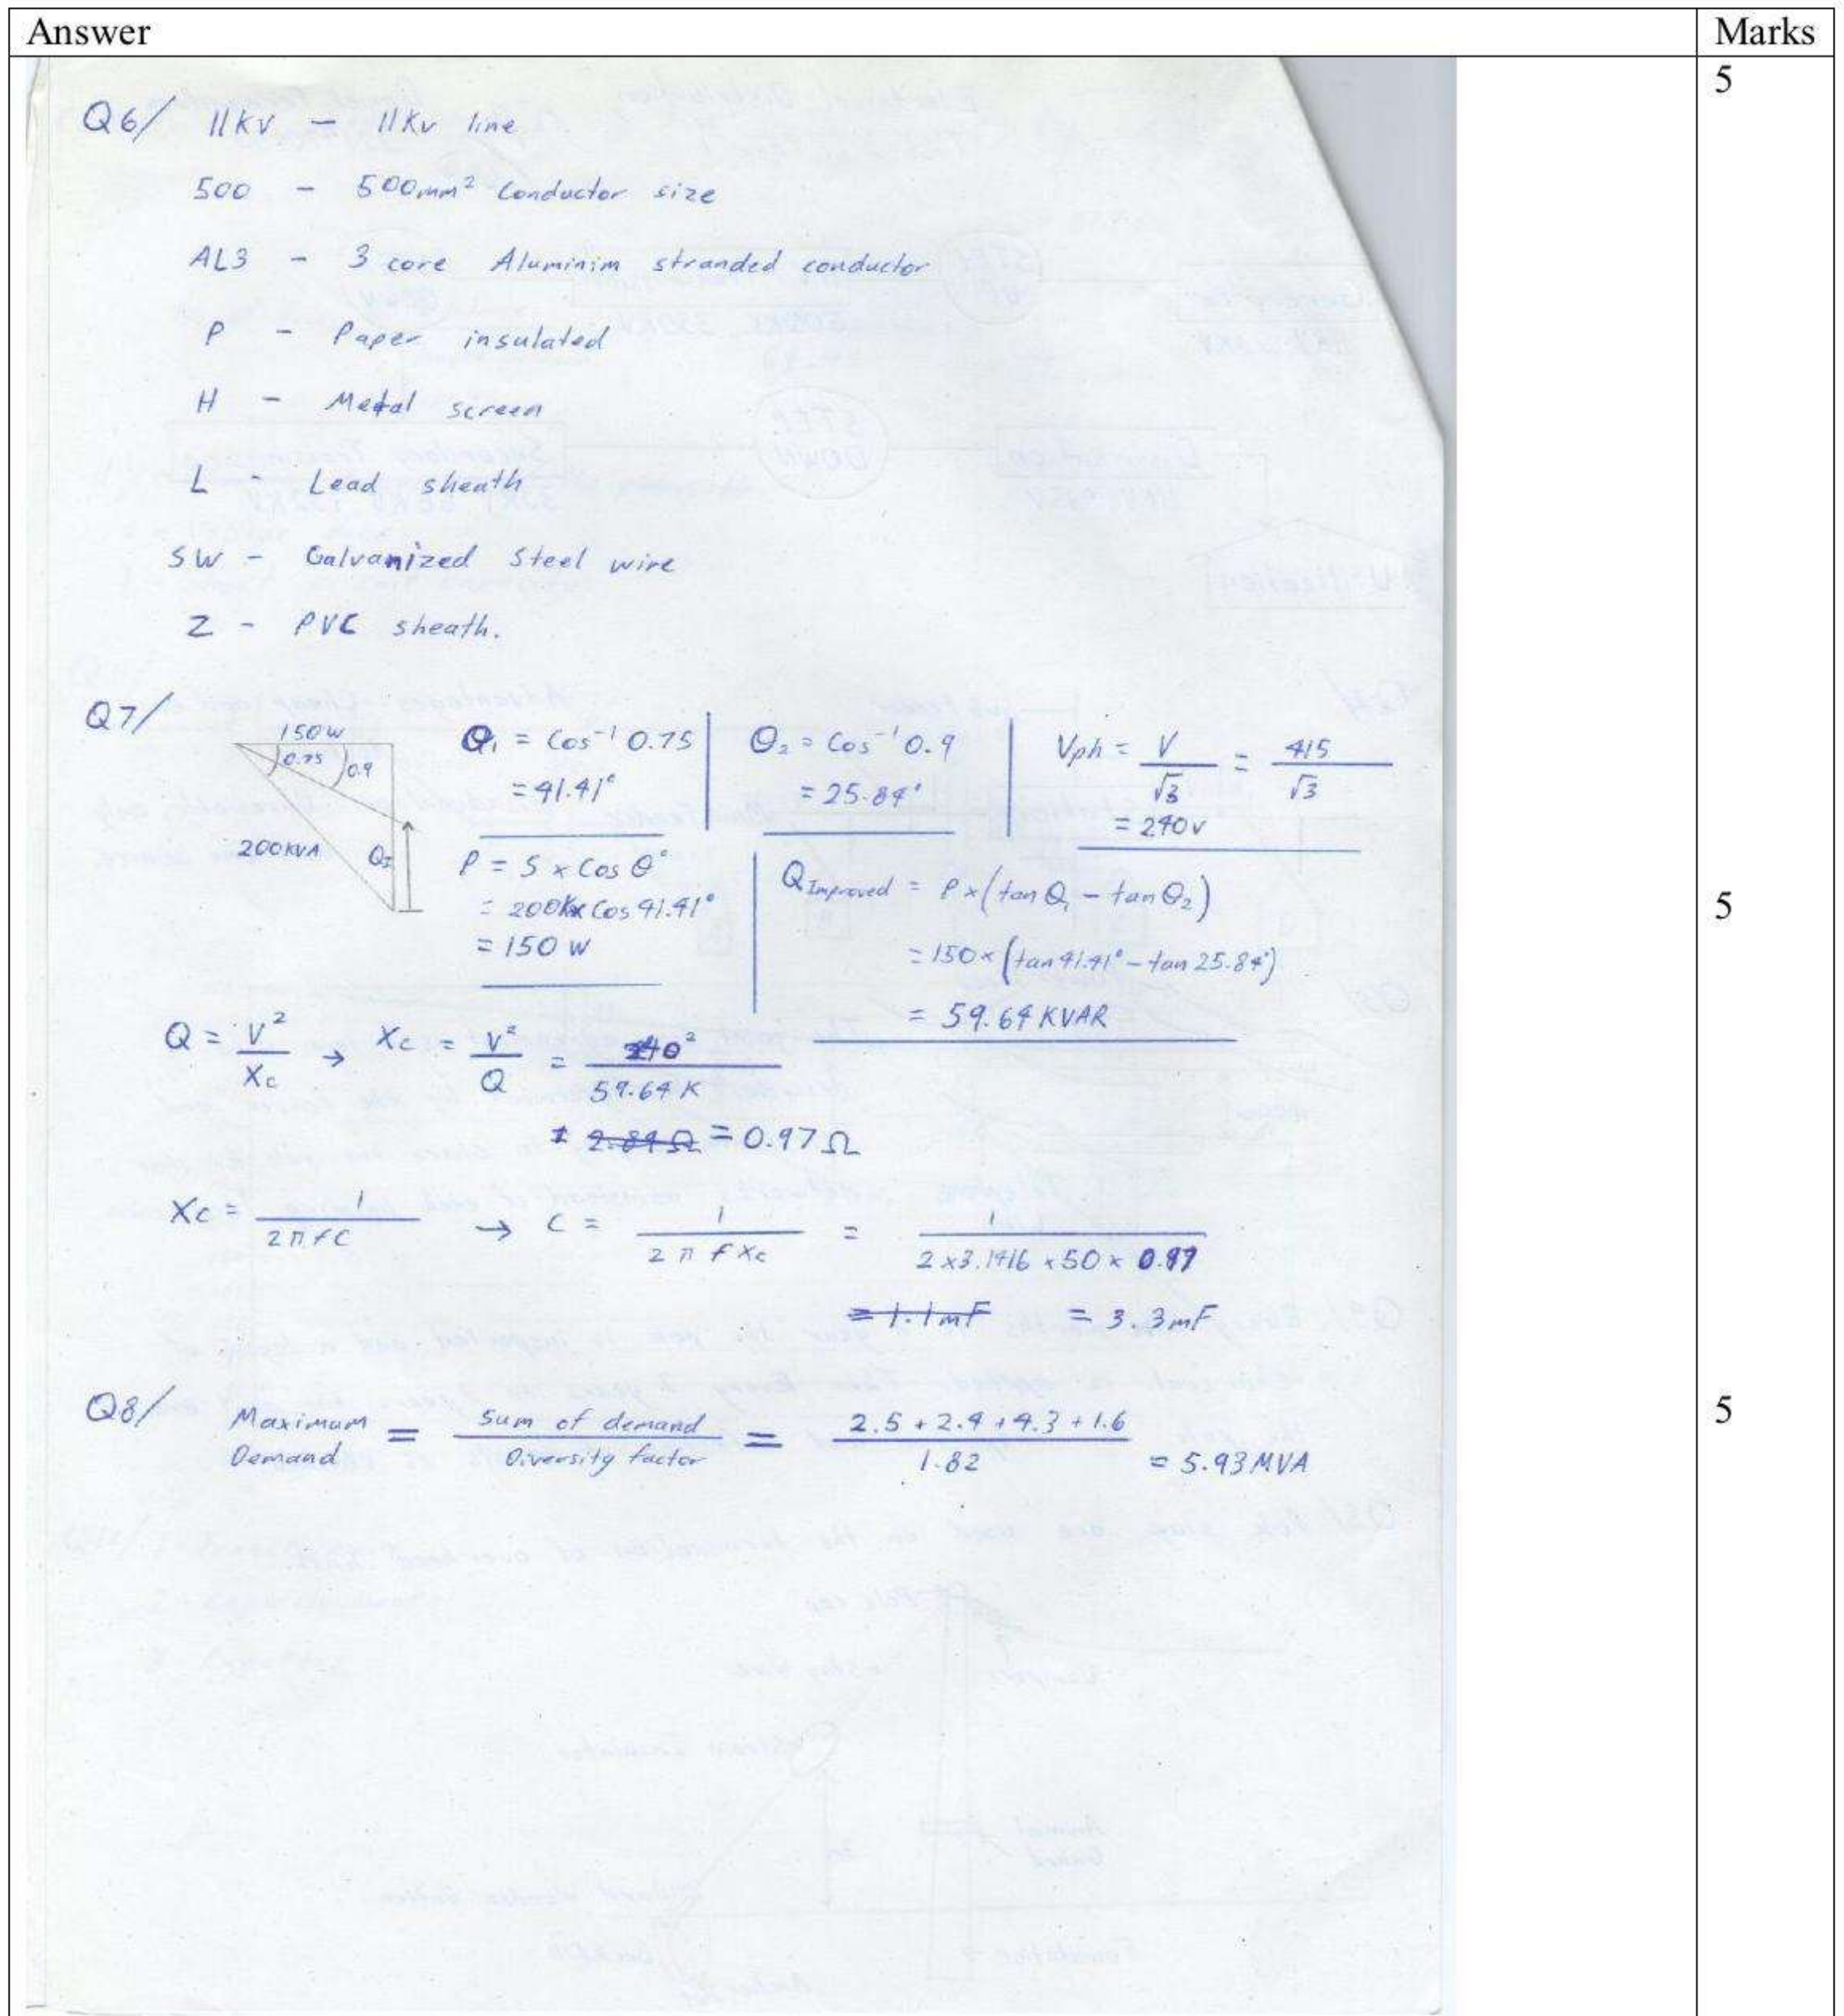 Answer Marks
5
Q6/ 11KV - 11Kv line
500 - 500mm² Conductor size
AL3 - 3 core Aluminim stranded conductor
P - Paper insulated
H - Metal screen
L - Lead sheath
SW - Galvanized Steel wire
Z - PVC sheath.
Q7/
150W
0.75 0.9
200KVA Q
Θ₁ = Cos⁻¹ 0.75
= 41.41°
Θ₂ = Cos⁻¹ 0.9
= 25.84°
Vph = V/√3 = 415/√3
= 240v
P = S x Cos Θ°
= 200K x Cos 41.41°
= 150 W
Q Improved = P x (tan Θ₁ - tan Θ₂)
= 150 x (tan 41.41° - tan 25.84°)
= 59.64 KVAR
5
Q = V²/Xc → Xc = V²/Q = 240²/59.64 K
= 2.89 Ω = 0.97 Ω
Xc = 1/2πfC → C = 1/2πfXc = 1/2 x 3.1416 x 50 x 0.97
= 1.1mF = 3.3mF
Q8/ Maximum Demand = Sum of demand/Diversity factor = 2.5 + 2.4 + 4.3 + 1.6/1.82 = 5.93 MVA
5